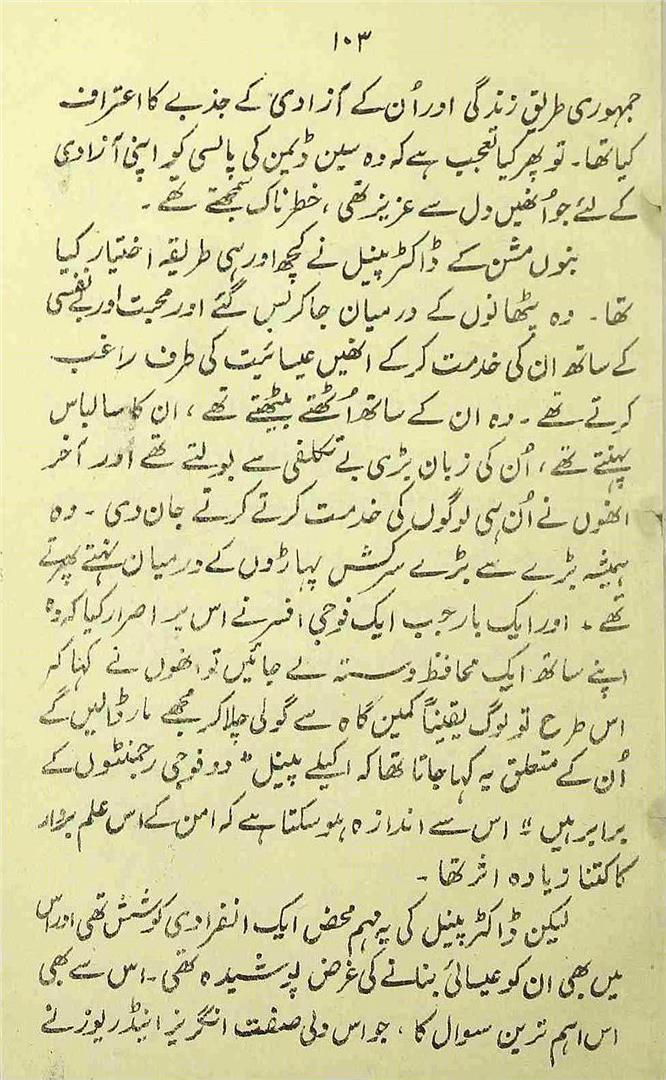 ۱۰۳
جمہوری طریقِ زندگی اور اُن کے آزادی کے جذبے کا اعتراف
کیا تھا۔ تو پھر کیا تعجب ہے کہ وہ سین ڈیمن کی پالسی کو اپنی آزادی
کے لئے جو اُنھیں دل سے عزیز تھی، خطرناک سمجھتے تھے۔
بنوں مشن کے ڈاکٹر پینل نے کچھ اور ہی طریقہ اختیار کیا
تھا۔ وہ پٹھانوں کے درمیان جا کر بس گئے اور محبت اور بے نفسی
کے ساتھ ان کی خدمت کر کے انھیں عیسائیت کی طرف راغب
کرتے تھے۔ وہ ان کے ساتھ اُٹھتے بیٹھتے تھے، ان کا سا لباس
پہنتے تھے، اُن کی زبان بڑی بے تکلفی سے بولتے تھے اور آخر
انھوں نے اُن ہی لوگوں کی خدمت کرتے کرتے جان دی۔ وہ
ہمیشہ بڑے سے بڑے سرکش پہاڑوں کے درمیان نہتے پھرتے
تھے۔ اور ایک بار جب ایک فوجی افسر نے اس پر اصرار کیا کہ وہ
اپنے ساتھ ایک محافظ دستہ لے جائیں تو انھوں نے کہا کہ
اس طرح تو لوگ یقیناً کمین گاہ سے گولی چلا کر مجھے مار ڈالیں گے
اُن کے متعلق یہ کہا جاتا تھا کہ اکیلے پینل " دو فوجی رجمنٹوں کے
برابر ہیں" اس سے اندازہ ہو سکتا ہے کہ امن کے اس علم بردار
کا کتنا زیادہ اثر تھا۔
لیکن ڈاکٹر پینل کی یہ مہم محض ایک انفرادی کوشش تھی اور اس
میں بھی ان کو عیسائی بنانے کی غرض پوشیدہ تھی۔ اس سے بھی
اس اہم ترین سوال کا، جو اس ولی صفت انگریز اینڈریوز نے